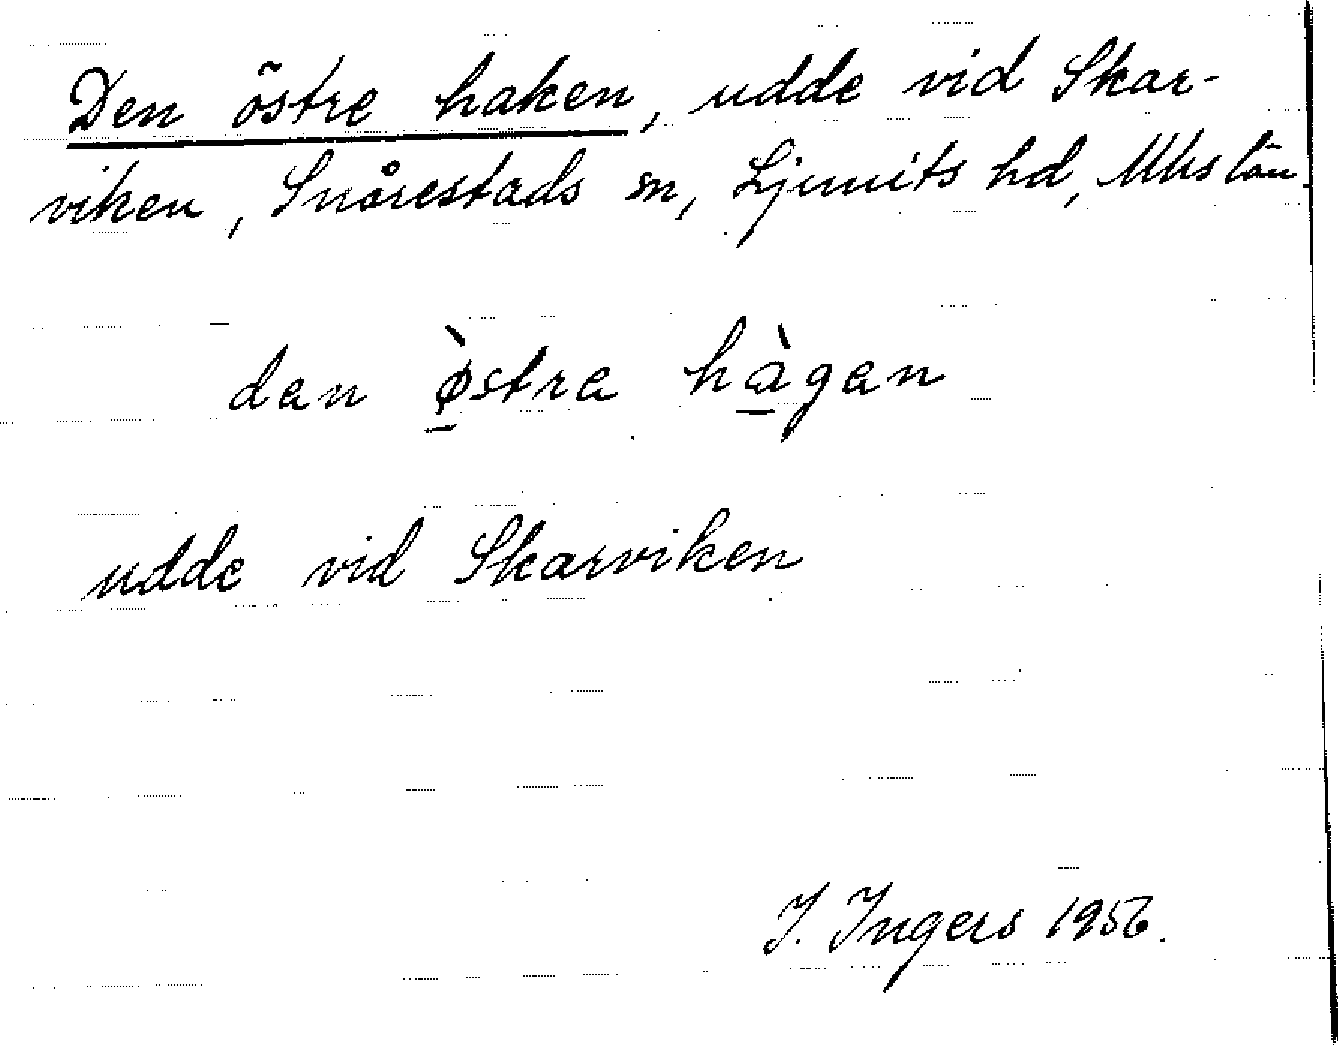 Den östre haken, udde vid Skar-
viken, Snårestads sn, Ljunits hd, Mhs län.
dan ø̀stra hàgan
udde vid Skarviken
I. Ingers 1956.